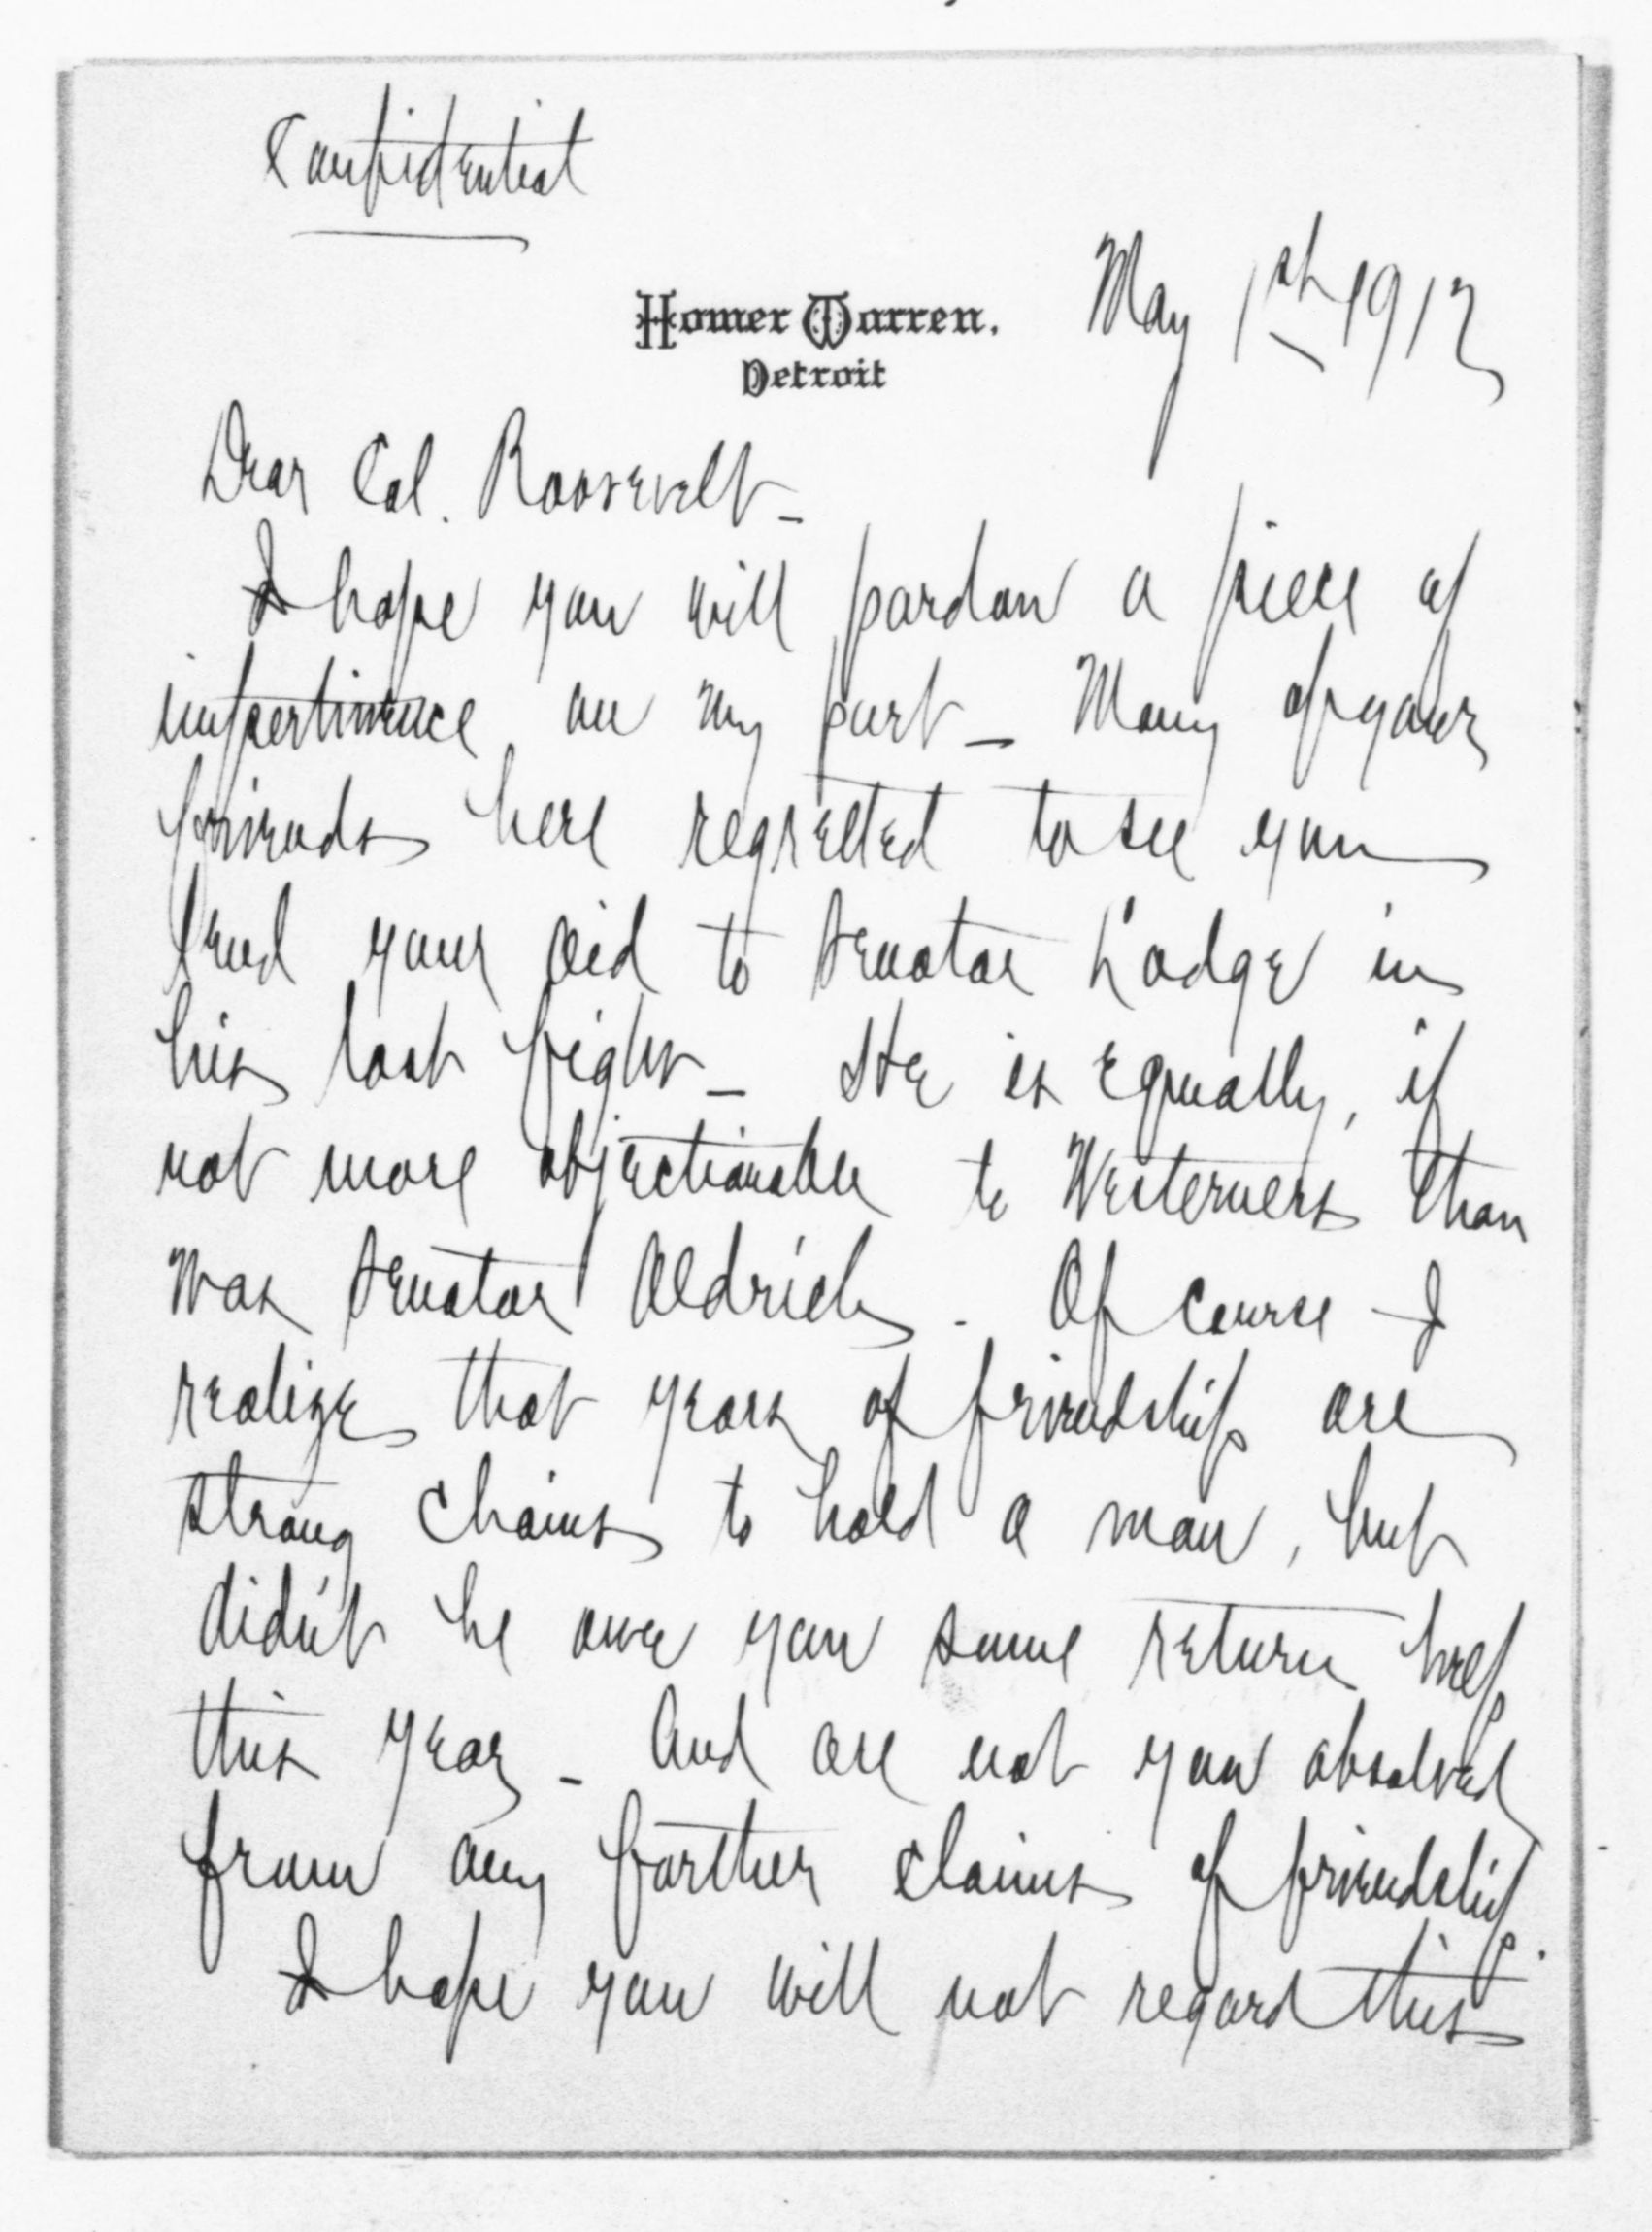 Confidential
May 1st 1912
Homer Warren.
Detroit
Dear Col. Roosevelt -
I hope you will pardon a piece of
impertinence on my part - Many of your
friends here regretted to see you
lend your aid to Senator Lodge in
his last fight - He is equally, if
not more objectionable to Westerners than
was Senator Aldrich. Of course I
realize that years of friendship are
strong chains to hold a man, but
didn't he owe you some return help
this year - And are not you absolved
from any further claims of friendship.
I hope you will not regard this